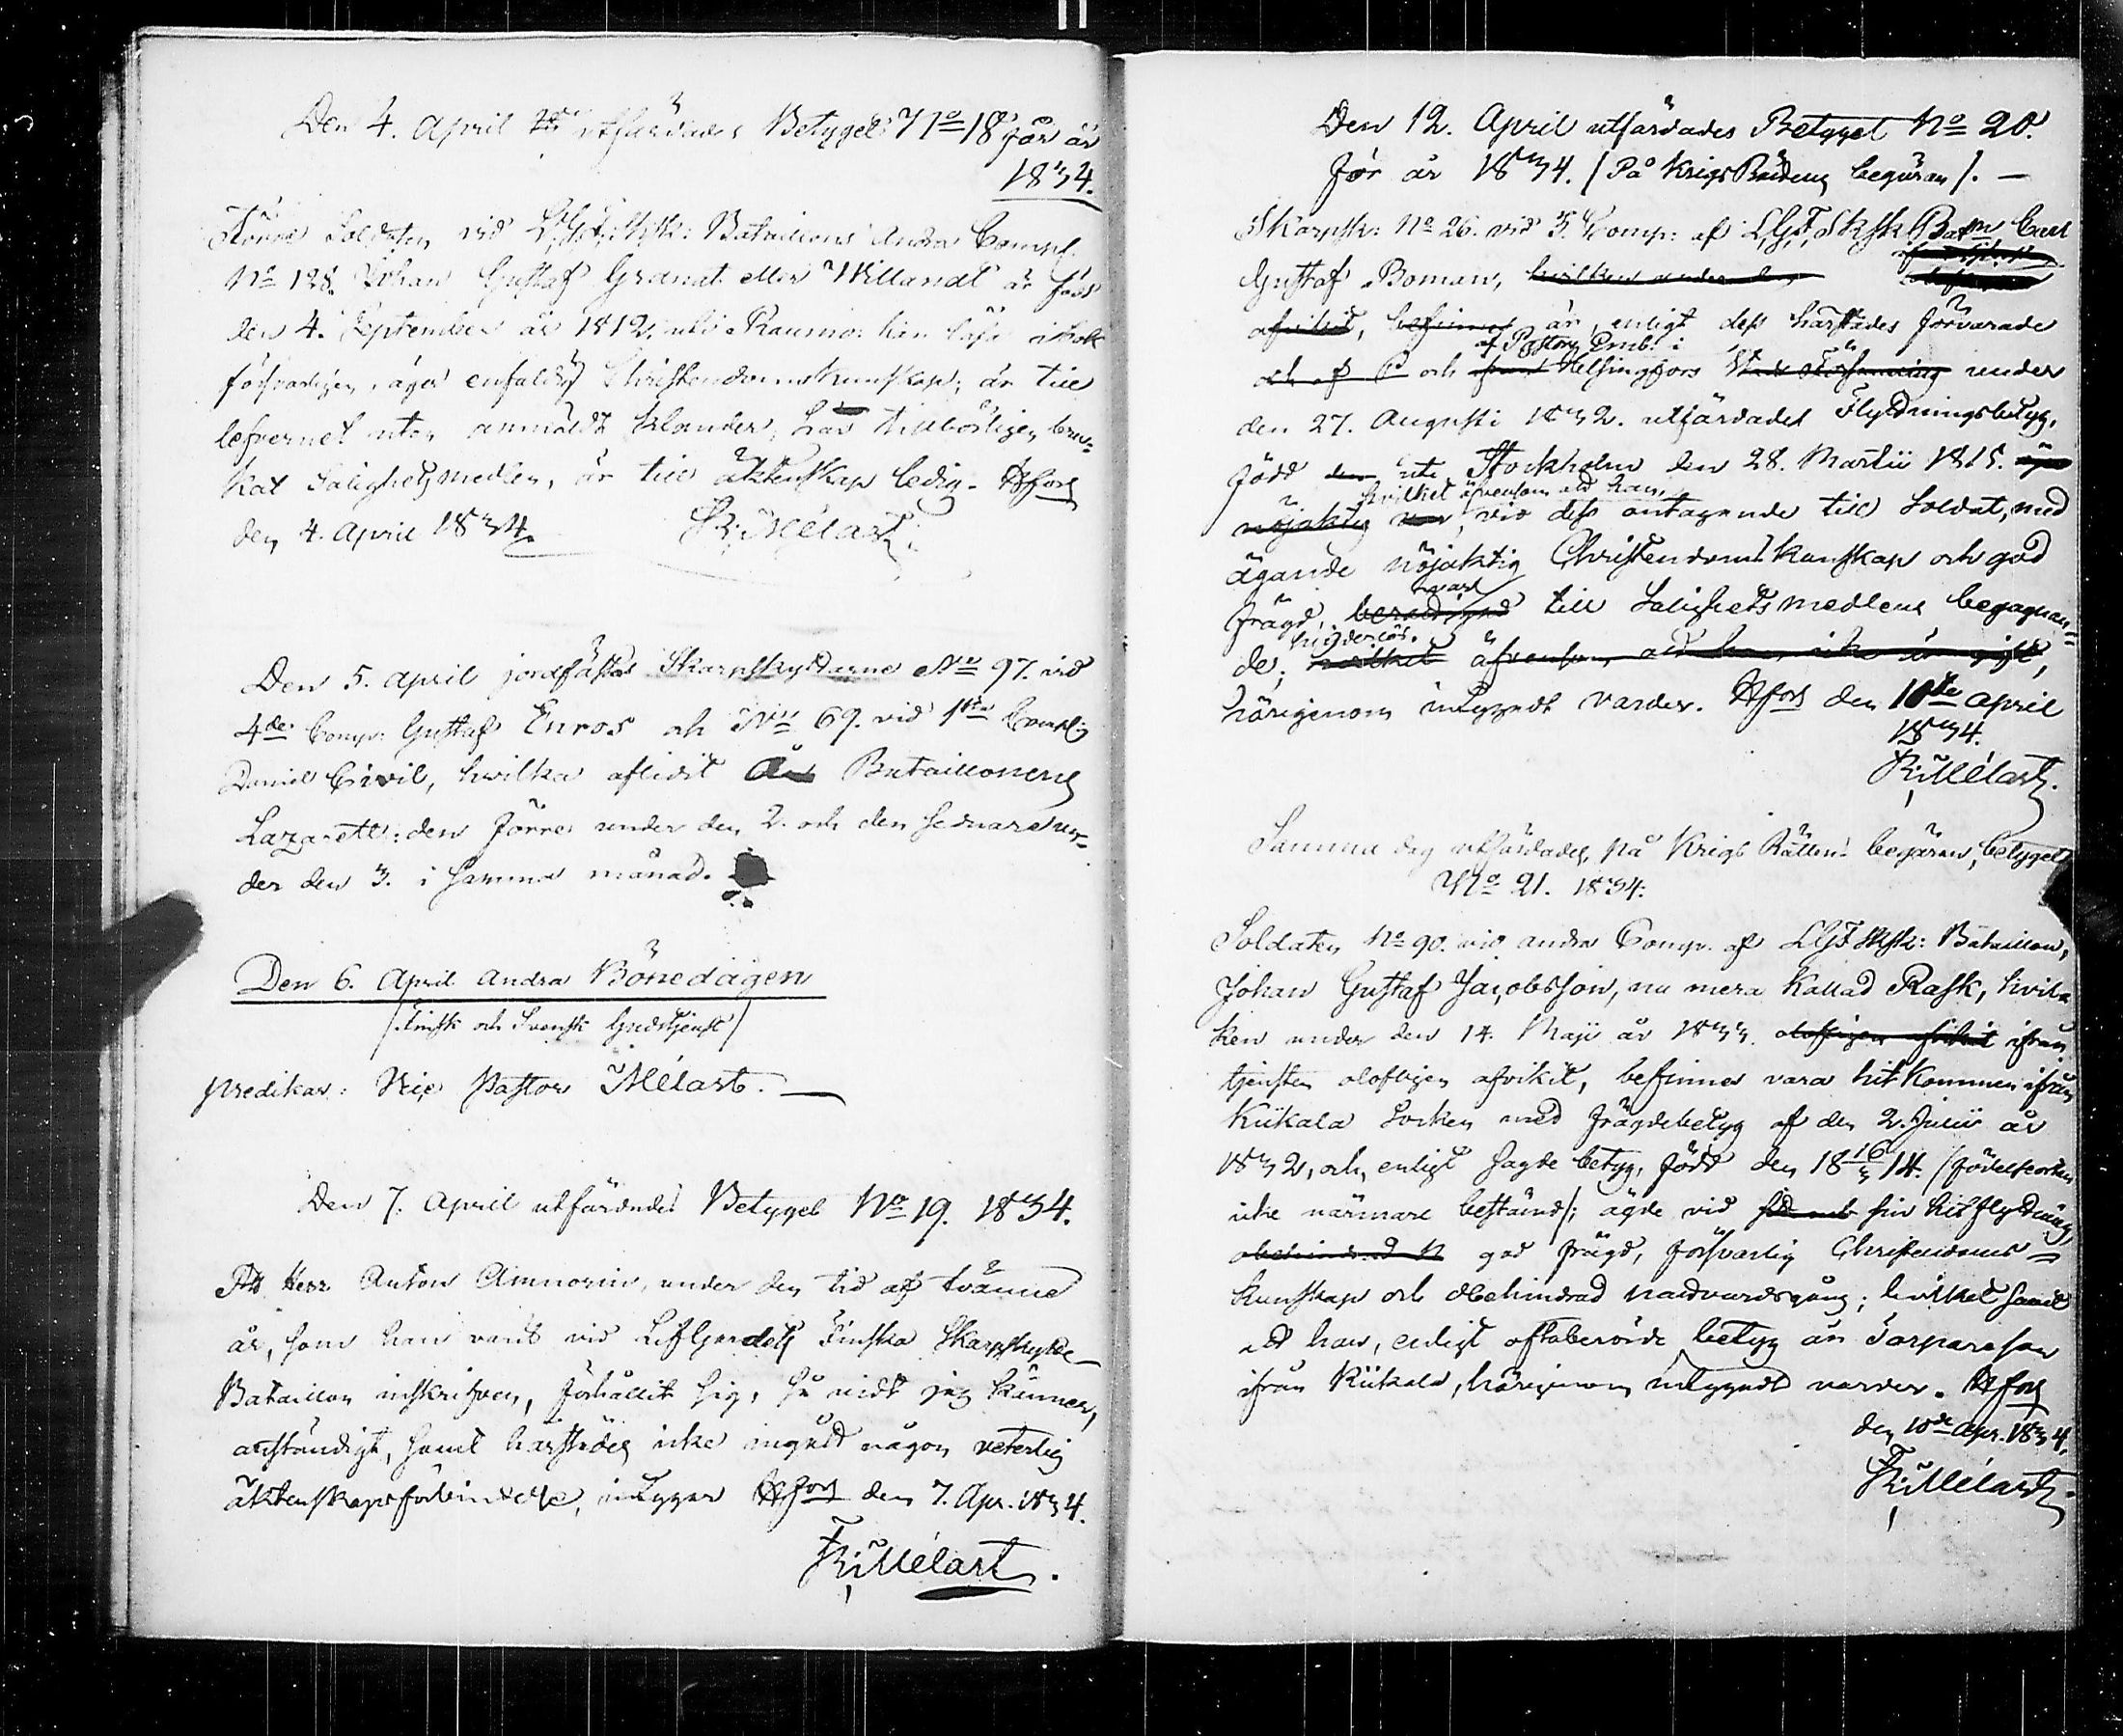 Den 4. April utfärdades Betyget No 18 för år
1834.
Förre Soldaten vid L.G.F.Sk.sk: Bataillons Andra Comp.
No 128. Johan Gustaf Granat eller Willandt är född
den 4. September år 1812, uti Raumo: kan läsa i bok
försvarligen, äger enfaldig Christendomskunskap; är till
lefvernet utan anmäldt klander, har tillbörligen bru-
kat Salighetsmedlen, är till äktenskap ledig. Hfors
den 4. April 1834. FR: Mélart.
Den 5. April jordfästes Skarpskyttarne No 97. vid
4de Comp: Gustaf Enros och No 69. vid 1sta Comp:
Daniel Civil, hvilka aflidit Å Bataillonens
Lazarett: den förre under den 2. och den sednare un-
der den 3. i samma månad.
Den 6. April Andra Bönedagen
/: Finsk och Svensk Gudstjenst /
predikar: Vice Pastor Mélart. —
Den 7. April utfärdades Betyget No 19. 1834.
Att Herr Anton Aminorin, under den tid af tvänne
år, som han varit vid Lifgardets Finska Skarpskytte-
Bataillon inskrifven, förhållit sig, så vidt jag känner,
anständigt, samt härstädes icke ingått någon veterlig
äktenskapsförbindelse, intygar Hfors den 7. Apr. 1834.
FR: Mélart.
Den 12. April utfärdades Betyget No 20.
för år 1834. / På KrigsRättens begäran /. —
Skarpsk: No 26. vid 3. Comp: af L.G.F. Sksk. Batn Carl
Gustaf Boman, hvilken under den
afvikit, befinnes är, enligt dess härstädes förvarade
af Pastors Emb: i
och af P och från Helsingfors Stads Församling under
den 27. Augusti 1832. utfärdades Flyttningsbetyg,
född den uti Stockholm den 28. Martii 1815.
hvilket äfvensom att han,
nöjaktig vid dess antagande till Soldat, med
ägande nöjaktig Christendomskunskap och god
frägd, varit till Salighetsmedlens begagnan-
hinderlös.
de; hvilket äfvensom att han icke är gift,
härigenom intygadt varder. Hfors den 10de April
1834.
FR: Mélart.
Samma dag utfärdades, på Krigs Rättens begäran, betyget
No 21. 1834:
Soldaten No 90. vid andra Comp. af LGF Sksk: Bataillon,
Johan Gustaf Jacobsson, nu mera kallad Rask, hvil-
ken under den 14. Maji år 1833. olofligen afvikit ifrån
tjensten olofligen afvikit, befinnes vara hitkommen ifrån
Kiikala Socken med frägdebetyg af den 2. Julii år
1832, och, enligt sagde betyg, född den 18 16/3 14. / födelseorten
icke närmare bestämd /; ägde vid sin hitflyttning
god frägd, försvarlig Christendoms-
kunskap och obehindrad nattvardsgång; hvilket samt
att han, enligt oftaberörde betyg är Torpareson
ifrån Kiikala, härigenom intygadt varder. Hfors
den 10de Apr. 1834.
FR: Mélart.